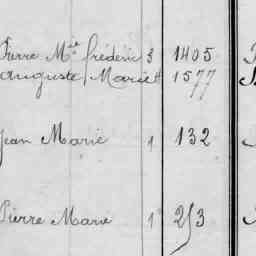 Pierre Mie frédéric 3 1405
Auguste Marie 4 1577
Jean Marie 1 132
Pierre Marie 1 253